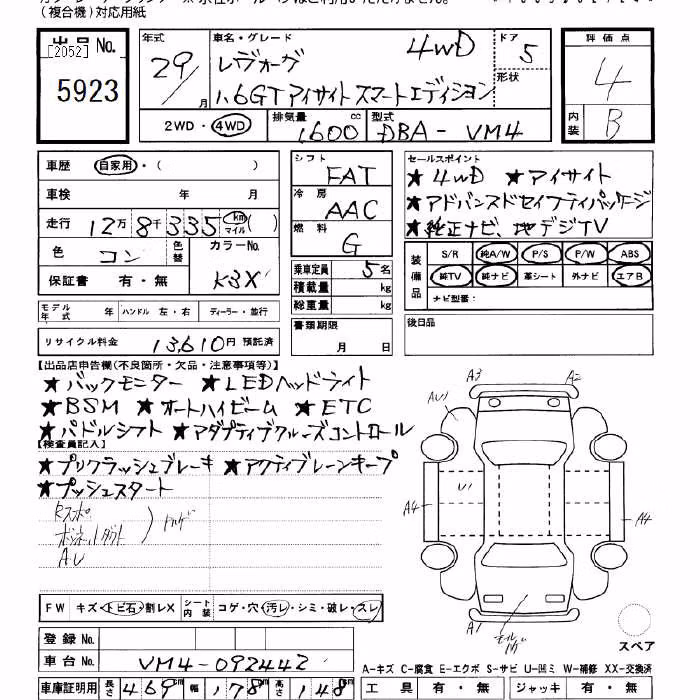 (複合機)対応用紙
出品No. [2052] 5923
年式 29/月
車名・グレード レヴォーグ 4WD
1.6GTアイサイトスマートエディション
ドア 5
形状
評価点 4
内装 B
2WD・4WD 排気量 1600 cc 型式 DBA- VM4
車歴 自家用・( )
車検 年 月
走行 12万8千335 km マイル ( )
色 コン 色替 カラーNo. K3X
保証書 有・無
シフト FAT
冷房 AAC
燃料 G
乗車定員 5名
積載量 kg
総重量 kg
セールスポイント
★4WD ★アイサイト
★アドバンスドセイフティパッケージ
★純正ナビ、地デジTV
装備品 S/R 純A/W P/S P/W ABS
純TV 純ナビ 革シート 外ナビ エアB
ナビ型番:
モデル年式 年 ハンドル 左・右 ディーラー・並行
リサイクル料金 13,610円 預託済
書類期限 月 日
後日品
【出品店申告欄(不良箇所・欠品・注意事項等)】
★バックモニター ★LEDヘッドライト
★BSM ★オートハイビーム ★ETC
★パドルシフト ★アダプティブクルーズコントロール
【検査員記入】
★プリクラッシュブレーキ ★アクティブレーンキープ
★プッシュスタート
Rスポ
AU
A3 A2
AU1
U1
A4 A4
A1
スペア
FW キズ・トビ石・割レX シート内装 コゲ・穴・汚レ・シミ・破レ・スレ
登録No.
車台No. VM4-092442
A-キズ C-腐食 E-エクボ S-サビ U-凹ミ W-補修 XX-交換済
車庫証明用 長さ 469cm 幅 178cm 高さ 148cm 工具 有・無 ジャッキ 有・無